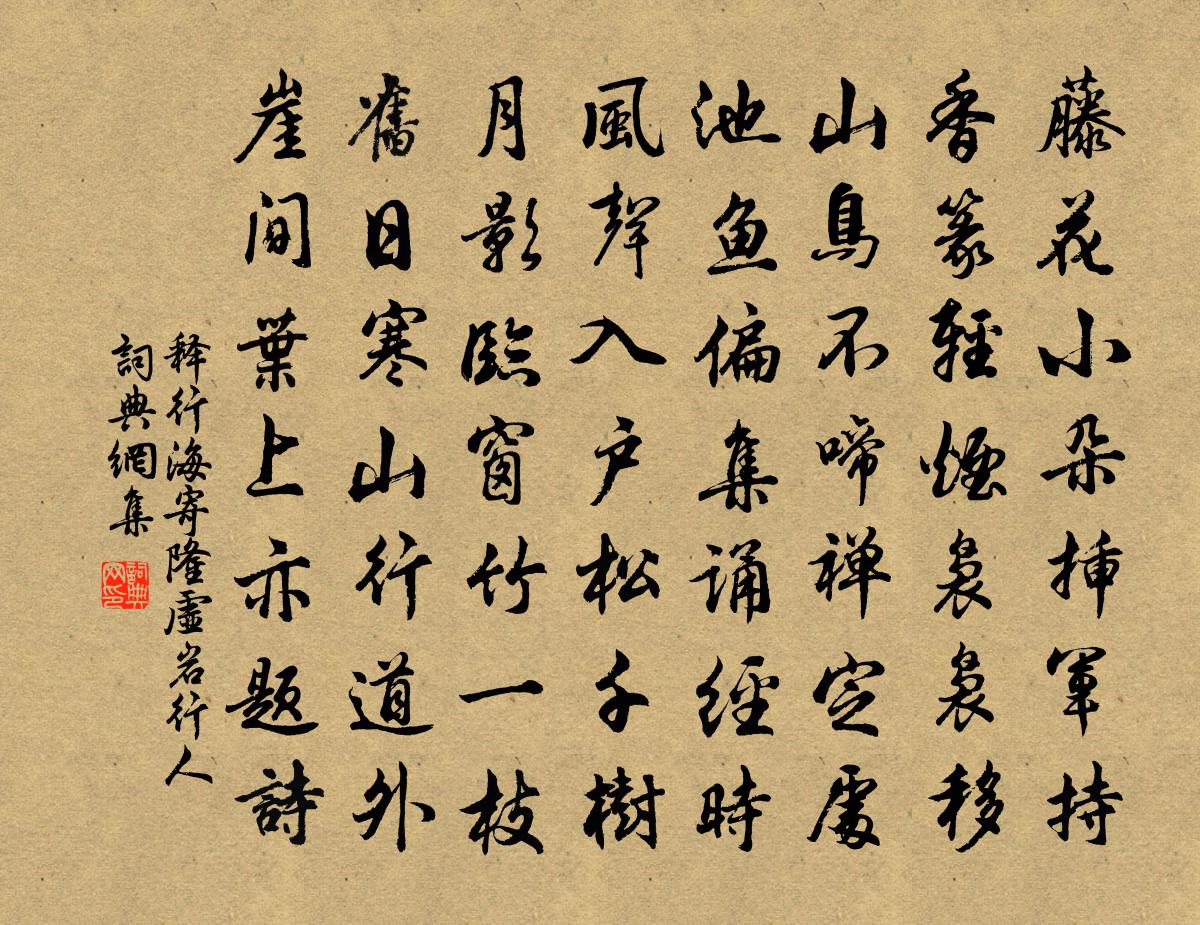 藤花小朵插軍持
香篆輕煙裊裊移
山鳥不啼禅定處
池鱼偏集诵經時
風聲入户松千樹
月影臨窗竹一枝
舊日寒山行道外
崖间葉上亦题詩
释行海寄隆虛岩行人
詞典網集
詞典网印